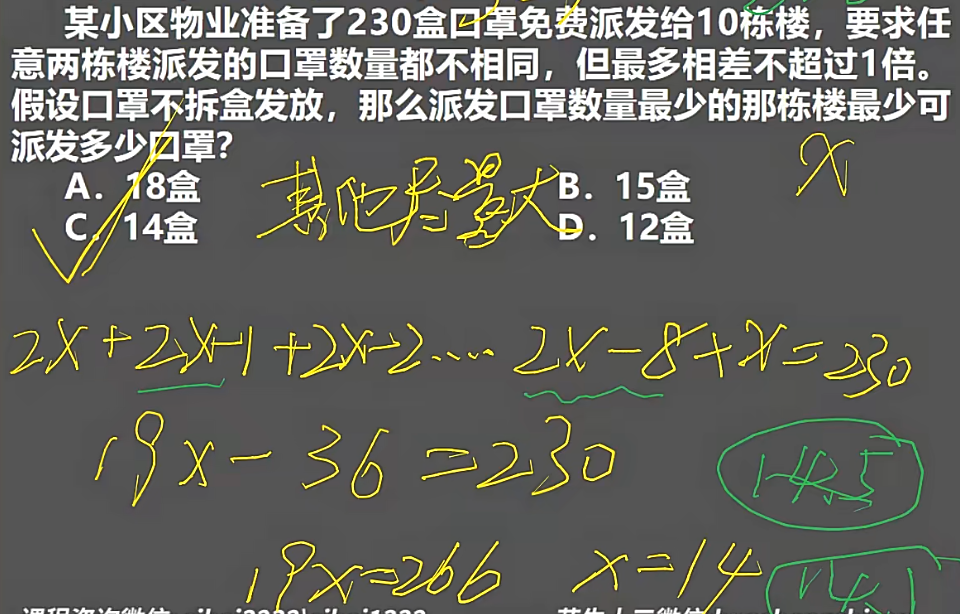 某小区物业准备了230盒口罩免费派发给10栋楼，要求任
意两栋楼派发的口罩数量都不相同，但最多相差不超过1倍。
假设口罩不拆盒发放，那么派发口罩数量最少的那栋楼最少可
派发多少口罩？
x
A．18盒 B．15盒
其他尽量大
C．14盒 D．12盒
2x+2x-1+2x-2……2x-8+x=230
19x-36=230
14.5
19x=266 x=14
14.1